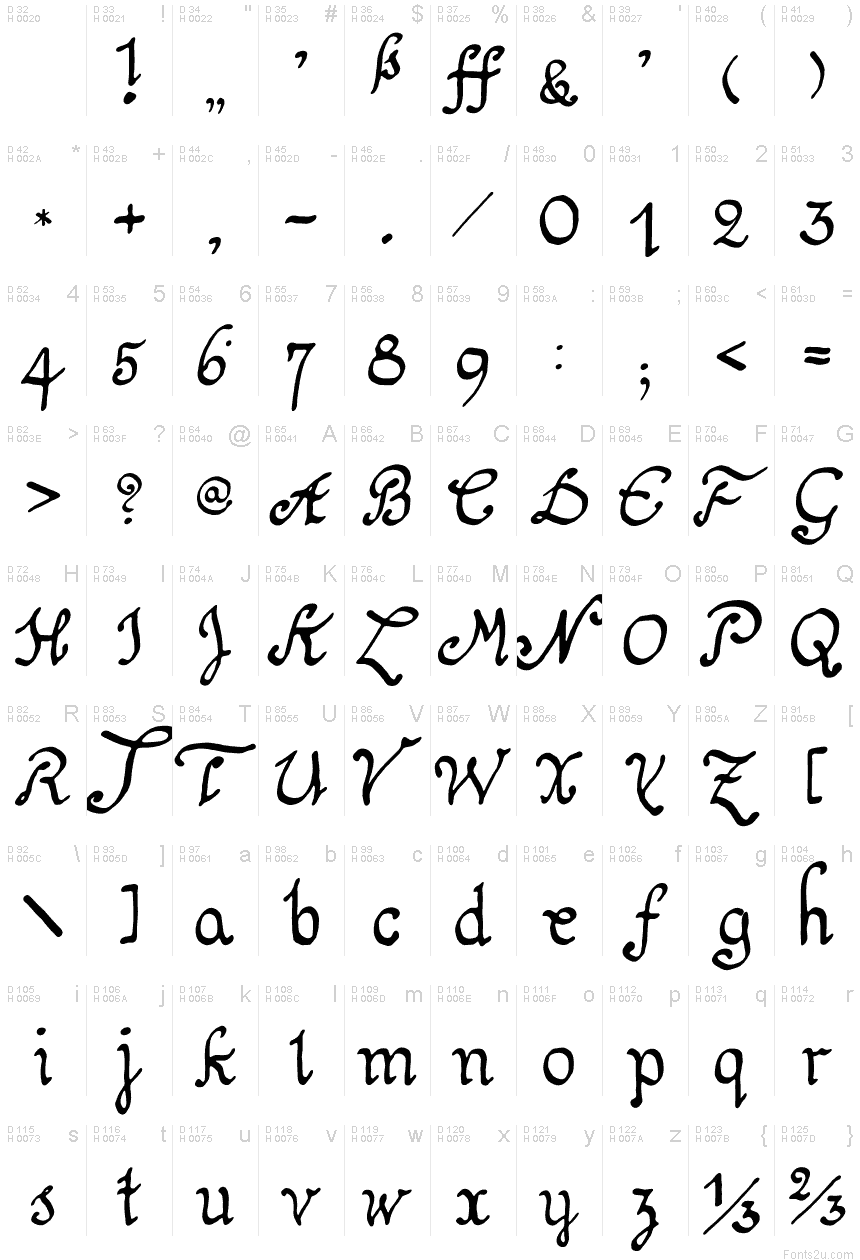 D 32 H 0020 D 33 H 0021 ! D 34 H 0022 " D 35 H 0023 # D 36 H 0024 $ D 37 H 0025 % D 38 H 0026 & D 39 H 0027 ' D 40 H 0028 ( D 41 H 0029 )
! „ ’ ß ff & ’ ( )
D 42 H 002A * D 43 H 002B + D 44 H 002C , D 45 H 002D - D 46 H 002E . D 47 H 002F / D 48 H 0030 0 D 49 H 0031 1 D 50 H 0032 2 D 51 H 0033 3
* + , - . / 0 1 2 3
D 52 H 0034 4 D 53 H 0035 5 D 54 H 0036 6 D 55 H 0037 7 D 56 H 0038 8 D 57 H 0039 9 D 58 H 003A : D 59 H 003B ; D 60 H 003C < D 61 H 003D =
4 5 6 7 8 9 : ; < =
D 62 H 003E > D 63 H 003F ? D 64 H 0040 @ D 65 H 0041 A D 66 H 0042 B D 67 H 0043 C D 68 H 0044 D D 69 H 0045 E D 70 H 0046 F D 71 H 0047 G
> ? @ A B C D E F G
D 72 H 0048 H D 73 H 0049 I D 74 H 004A J D 75 H 004B K D 76 H 004C L D 77 H 004D M D 78 H 004E N D 79 H 004F O D 80 H 0050 P D 81 H 0051 Q
H I J K L M N O P Q
D 82 H 0052 R D 83 H 0053 S D 84 H 0054 T D 85 H 0055 U D 86 H 0056 V D 87 H 0057 W D 88 H 0058 X D 89 H 0059 Y D 90 H 005A Z D 91 H 005B [
R S T U V W X Y Z [
D 92 H 005C \ D 93 H 005D ] D 97 H 0061 a D 98 H 0062 b D 99 H 0063 c D 100 H 0064 d D 101 H 0065 e D 102 H 0066 f D 103 H 0067 g D 104 H 0068 h
\ ] a b c d e f g h
D 105 H 0069 i D 106 H 006A j D 107 H 006B k D 108 H 006C l D 109 H 006D m D 110 H 006E n D 111 H 006F o D 112 H 0070 p D 113 H 0071 q D 114 H 0072 r
i j k l m n o p q r
D 115 H 0073 s D 116 H 0074 t D 117 H 0075 u D 118 H 0076 v D 119 H 0077 w D 120 H 0078 x D 121 H 0079 y D 122 H 007A z D 123 H 007B { D 125 H 007D }
s t u v w x y z ⅓ ⅔
Fonts2u.com